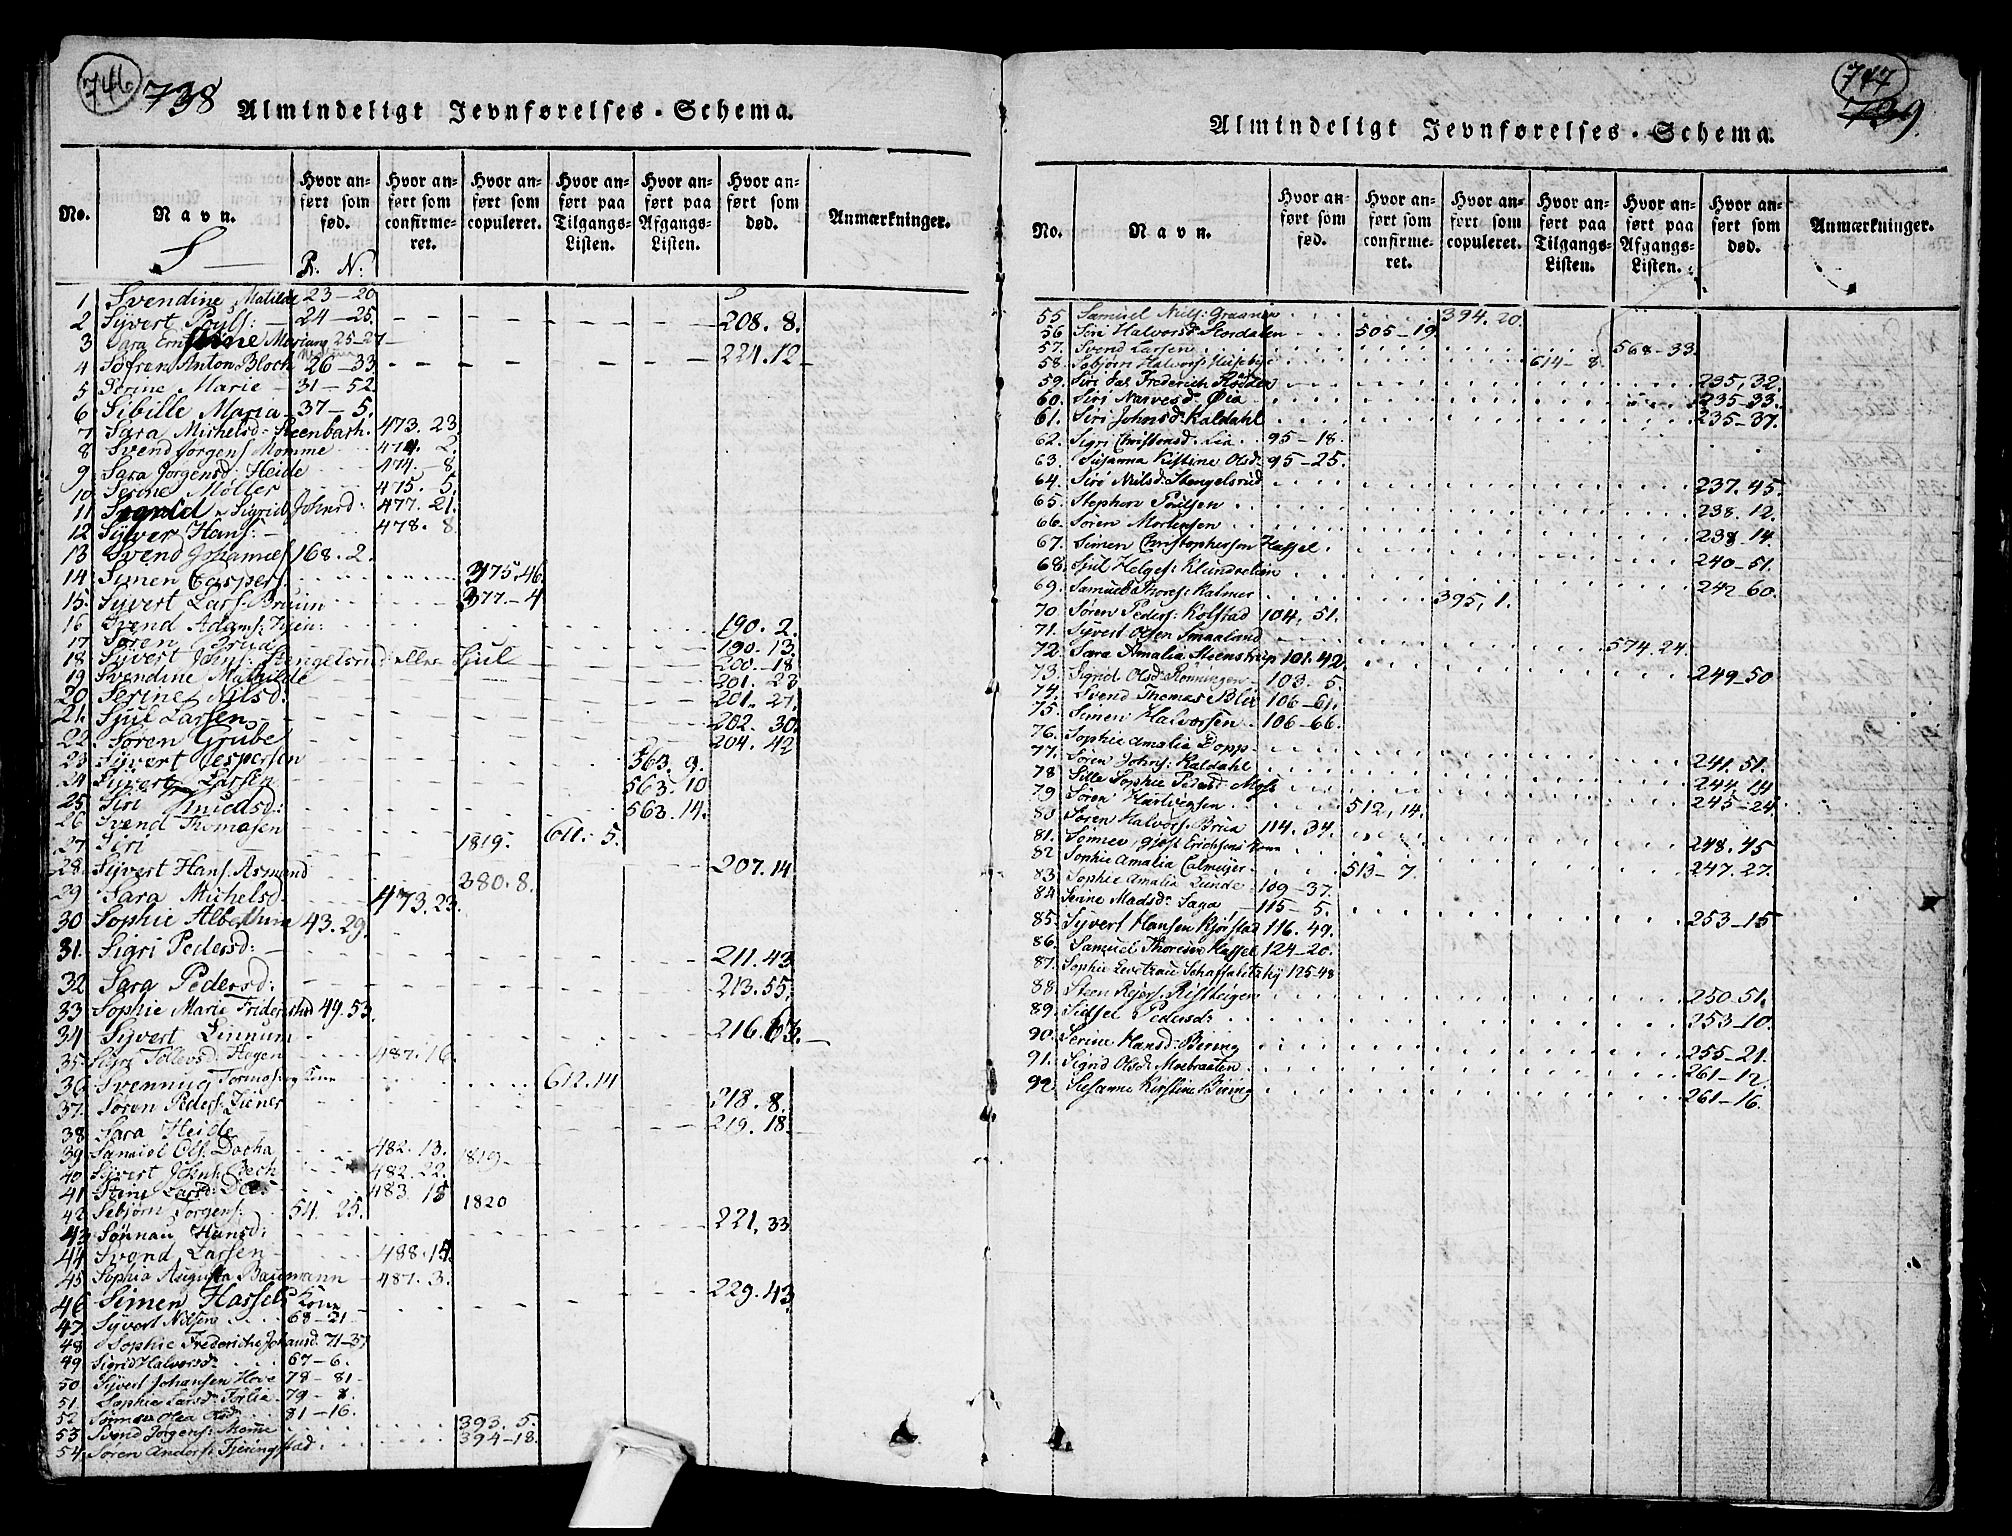 746 738 Almindeligt Jevnførelses-Schema.
No. Navn. Hvor anført som fød. Hvor anført som confirmeret. Hvor anført som copuleret. Hvor anført paa Tilgangs-Listen. Hvor anført paa Afgangs-Listen. Hvor anført som død. Anmærkninger.
S P. N:
1 Svendine Matilde 23-20
2 Syvert Pouls: 24-25. 208. 8.
3 Sara 25-27
4 Søfren Anton Bloch 26-33 224.12
5 Serine Marie 31-52
6 Sibille Maria 37-5.
7 Sara Michelsd: Steenbach. 473. 23
8 Svend Jørgens Momme 474. 2.
9 Sara Jørgensd: Heide 474. 8
10 Serine Møller 475. 5
11 Sigrid Johnsd: 477. 21.
12 Sylver Hans: 478. 8
13 Svend Johannes 168. 2.
14 Simen Caspers. 375.46
15. Syvert Lars: Bruun 377-4
16 Svend Adams: 190. 2.
17 Søren Brua 190. 13.
18 Syvert Johns: Stengelsrud eller Sjul 200-18
19 Svendine Mathilde 201. 23
20 Serine Nilsd: 201. 27.
21. Sjul Larsen 202. 30.
22. Søren Grube 204. 42
23 Syvert Jespersen 563. 9.
24 Syvert Larsen 563. 10
25. Siri Knudsd: 563. 14.
26 Svend Thomasen
27 Siri 1819. 611. 5.
28. Syvert Hans: Asmand 207. 14
29 Sara Michelsd. 473.23. 380. 8.
30 Sophie Albertine 43.29.
31. Sigri Pedersd: 211.43
32 Sara Pedersd: 213.55.
33 Sophie Marie Fridenstad 49.53.
34 Syvert Linnum 216.63.
35 Tollevsd: Hegen 487.16.
36 Svennug Kone 612.14
37. Søren Peders: 218. 8.
38 Sara Heide 219. 18.
39 Samuel Ols: Docka 482. 13. 1819
40 Syvert Johns: Bech 482. 22.
41 Stine Larsd: Dees 483. 15 1820
42 Sebjørn Jorgens: 54. 25.
43 Sønnau Hansd: 221. 33
44 Svend Larsen 488.15.
45 Sophia Augusta Baumann 487. 3.
46 Simen Hassels Kone 229. 43
47. Syvert Nilsen 68-21
48 Sophie Frederiche Johansd. 71-37
49 Sigrid Halvorsd: 67-6.
50 Syvert Johansen Hove 78-81
51. Sophie Larsd: 79-8.
52 Sønneu Olea Olsd: 81-16.
53 Svend Jørgens: Mome 393. 5.
54. Søren Anders: Tjeringstad 394-18.
747 739
Almindeligt Jevnførelses-Schema.
No. Navn. Hvor anført som fød. Hvor anført som confirmeret. Hvor anført som copuleret. Hvor anført paa Tilgangs-Listen. Hvor anført paa Afgangs-Listen. Hvor anført som død. Anmærkninger.
55 Samuel Niels: Graanen 394. 20.
56 Siri Halvorsd: Stordalen 505-19
57. Svend Larsen 568-33.
58. Sebjørn Halvors: Huseby 614-8.
59. Siri Frederich 235. 32.
60. Siri Narvesd: Øia 235-33.
61. Siri Johnsd: Kaldahl 235-37.
62. Sigri Christensd: Lia 95-18.
63. Susanna Kistine Olsd: 95-25.
64. Siri Nilsd: Stengelsrud 237.45.
65. Stephen Poulsen 238. 12.
66. Søren Mortensen 238-14.
67. Simen Christophersen Hassel 240-51.
68. Sjul Helges: 242 60.
69. Samuel Thores: Kalmer 395, 1.
70. Søren Peders: Kolstad 104, 51.
71. Syvert Olsen Smaaland 574.24.
72. Sara Amalia Steenstrup 101.42.
73. Sigrid Olsd: Rønningen 103. 5. 249-50
74. Svend Thomas Blix 106-61.
75. Simen Halvorsen 106-66.
76. Sophie Amalia Dopp
77. Søren Johns: Kaldahl 241. 51.
78 Sille Sophie Pedersd: Moss 244, 14
79 Søren Hartvigsen 512, 14. 245-24
80 Søren Halvors: Brua 114. 34.
81. Sønnev gjest Erichsens Kone 248. 45
82 Sophie Amalia Calmeyer 513-7. 247. 27.
83. Sophie Amalia Lunde 109-37
84. Sinne Madsd: Saga 115-5. 253-15
85. Syvert Hansen Kjørstad 116. 49.
86. Samuel Thoresen Hassel 124-20.
87. Sophie Levetzau Schaffalitzky 125-48
88. Steen Rejers: Ristteigen 250.51.
89. Sidsel Pedersd: 253-10.
90. Serine Hansd: Biring 255-21.
91. Sigrid Olsd: Moebraaten 261-12.
92. Susanne Kirstine Biring 261-16.